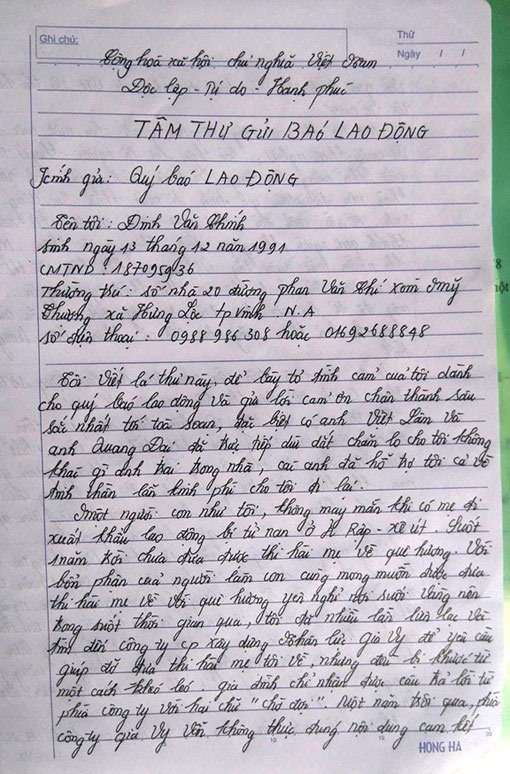 Ghi chú:
Thứ
Ngày / /
Cộng hoà xã hội chủ nghĩa Việt Nam
Độc lập - Tự do - Hạnh phúc
TÂM THƯ GỬI BÁO LAO ĐỘNG
Kính gửi: Quý báo LAO ĐỘNG
Tên tôi: Đinh Văn Chính
Sinh ngày 13 tháng 12 năm 1991
CMTND: 187095936
Thường trú: số nhà 20 đường phan Văn Chí xóm Mỹ
Thượng xã Hưng Lộc tp vinh . N.A
số điện thoại: 0988 986 308 hoặc 01692688848
Tôi viết lá thư này, để bày tỏ tình cảm của tôi dành
cho quý báo lao động và gửi lời cảm ơn chân thành sâu
sắc nhất tới toà soạn, đặc biệt có anh Việt Lâm và
anh Quang Đại đã trực tiếp dìu dắt chăm lo cho tôi không
khác gì anh trai trong nhà, các anh đã hỗ trợ tôi cả về
tinh thần lẫn kinh phí cho tôi đi lại.
Một người con như tôi, không may mắn khi có mẹ đi
xuất khẩu lao động bị tử nạn ở Ả Rập - xê út. Suốt
1 năm trời chưa đưa được thi hài mẹ về quê hương. Với
bổn phận của người làm con cũng mong muốn được đưa
thi hài mẹ về với quê hương yên nghỉ nơi suối Vàng nên
trong suốt thời gian qua, tôi đã nhiều lần liên lạc và
tìm đến công ty cp xây dựng Nhân lực Gia Vy để yêu cầu
giúp đỡ đưa thi hài mẹ tôi về, nhưng đều bị khước từ
một cách khéo léo gia đình chỉ nhận được câu trả lời từ
phía công ty với hai chữ "chờ đợi". Một năm trôi qua, phía
công ty gia Vy vẫn không thực đúng nội dung cam kết
HONG HA